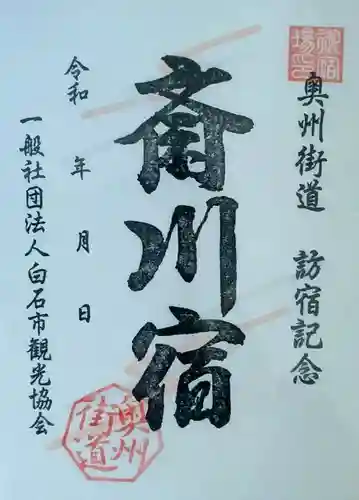 御宿
場印
奥州街道 訪宿記念
斎川宿
令和 年 月 日
一般社団法人白石市觀光協会
奥州
街道